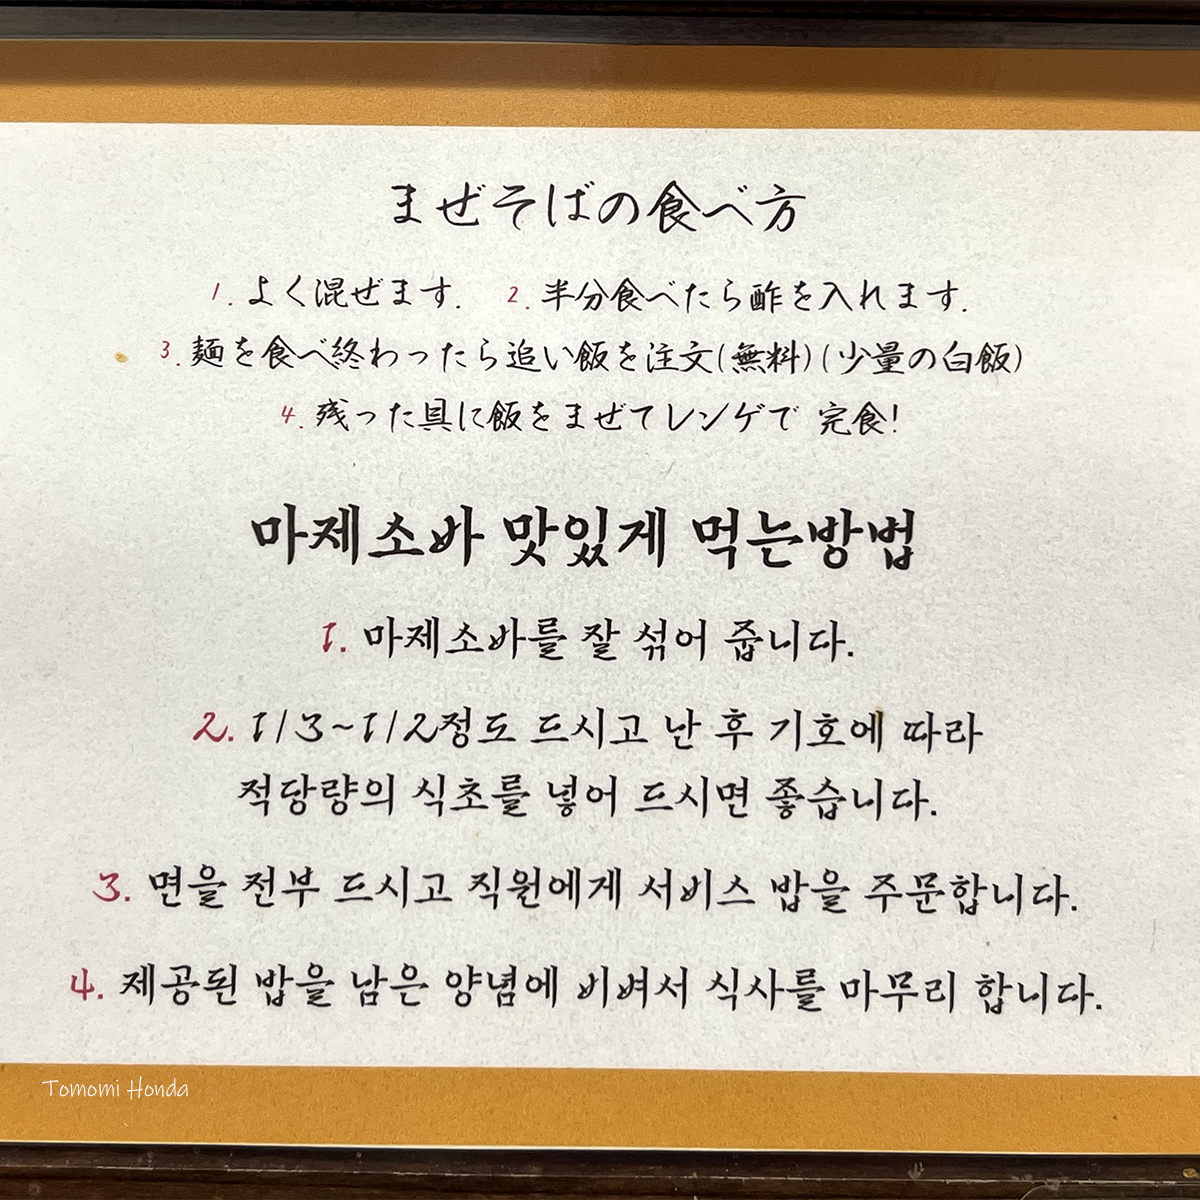 まぜそばの食べ方
1. よく混ぜます. 2. 半分食べたら酢を入れます.
3. 麺を食べ終わったら追い飯を注文(無料)(少量の白飯)
4. 残った具に飯をまぜてレンゲで 完食!
마제소바 맛있게 먹는방법
1. 마제소바를 잘 섞어 줍니다.
2. 1/3~1/2정도 드시고 난 후 기호에 따라
적당량의 식초를 넣어 드시면 좋습니다.
3. 면을 전부 드시고 직원에게 서비스 밥을 주문합니다.
4. 제공된 밥을 남은 양념에 비벼서 식사를 마무리 합니다.
Tomomi Honda